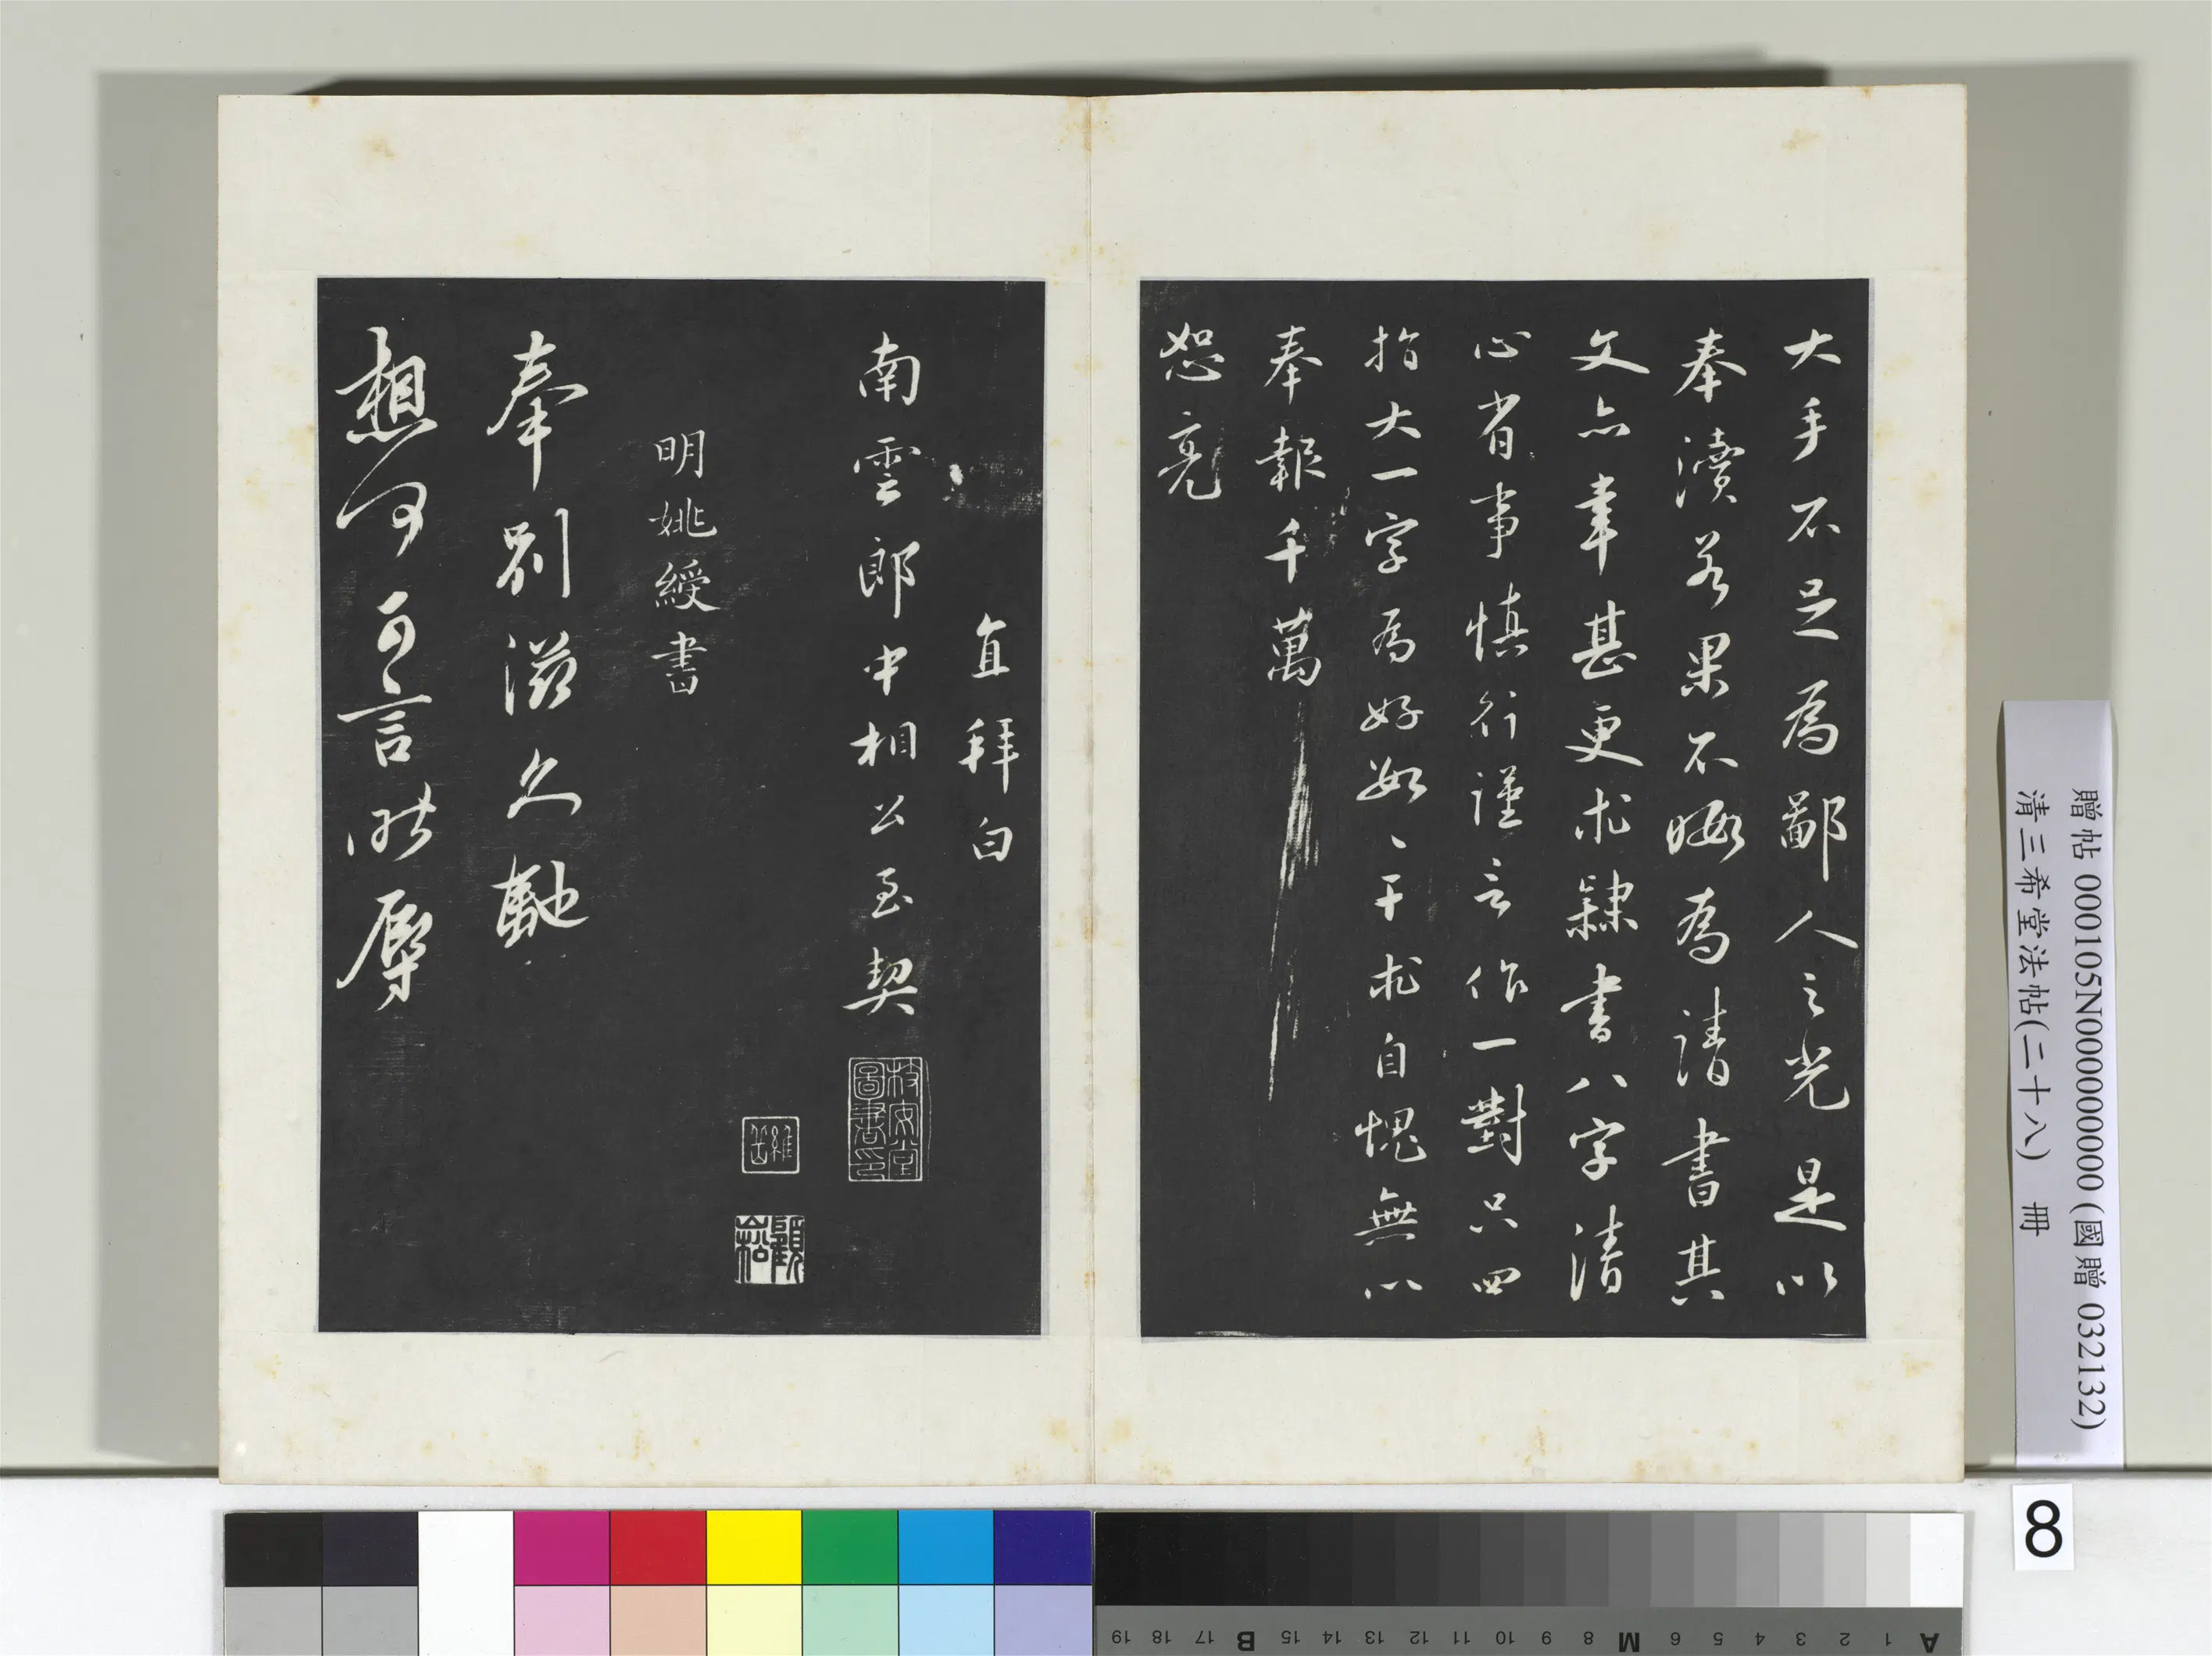 大手不足為鄙人之光是以
奉瀆若果不晦為請書其
文亦幸甚更求隸書八字清
心省事慎行謹言作一對只四
指大一字為好如〻干求自愧無以
奉報千萬
恕亮
直拜白
南雲郎中相公至契
明姚綬書
奉別滋久馳
想何可言昨辱
顧松
贈帖 000105N000000000 (國贈 032132)
清三希堂法帖(二十八) 冊
8
A 1 2 3 4 5 6 M 8 9 10 11 12 13 14 15 B 17 18 19